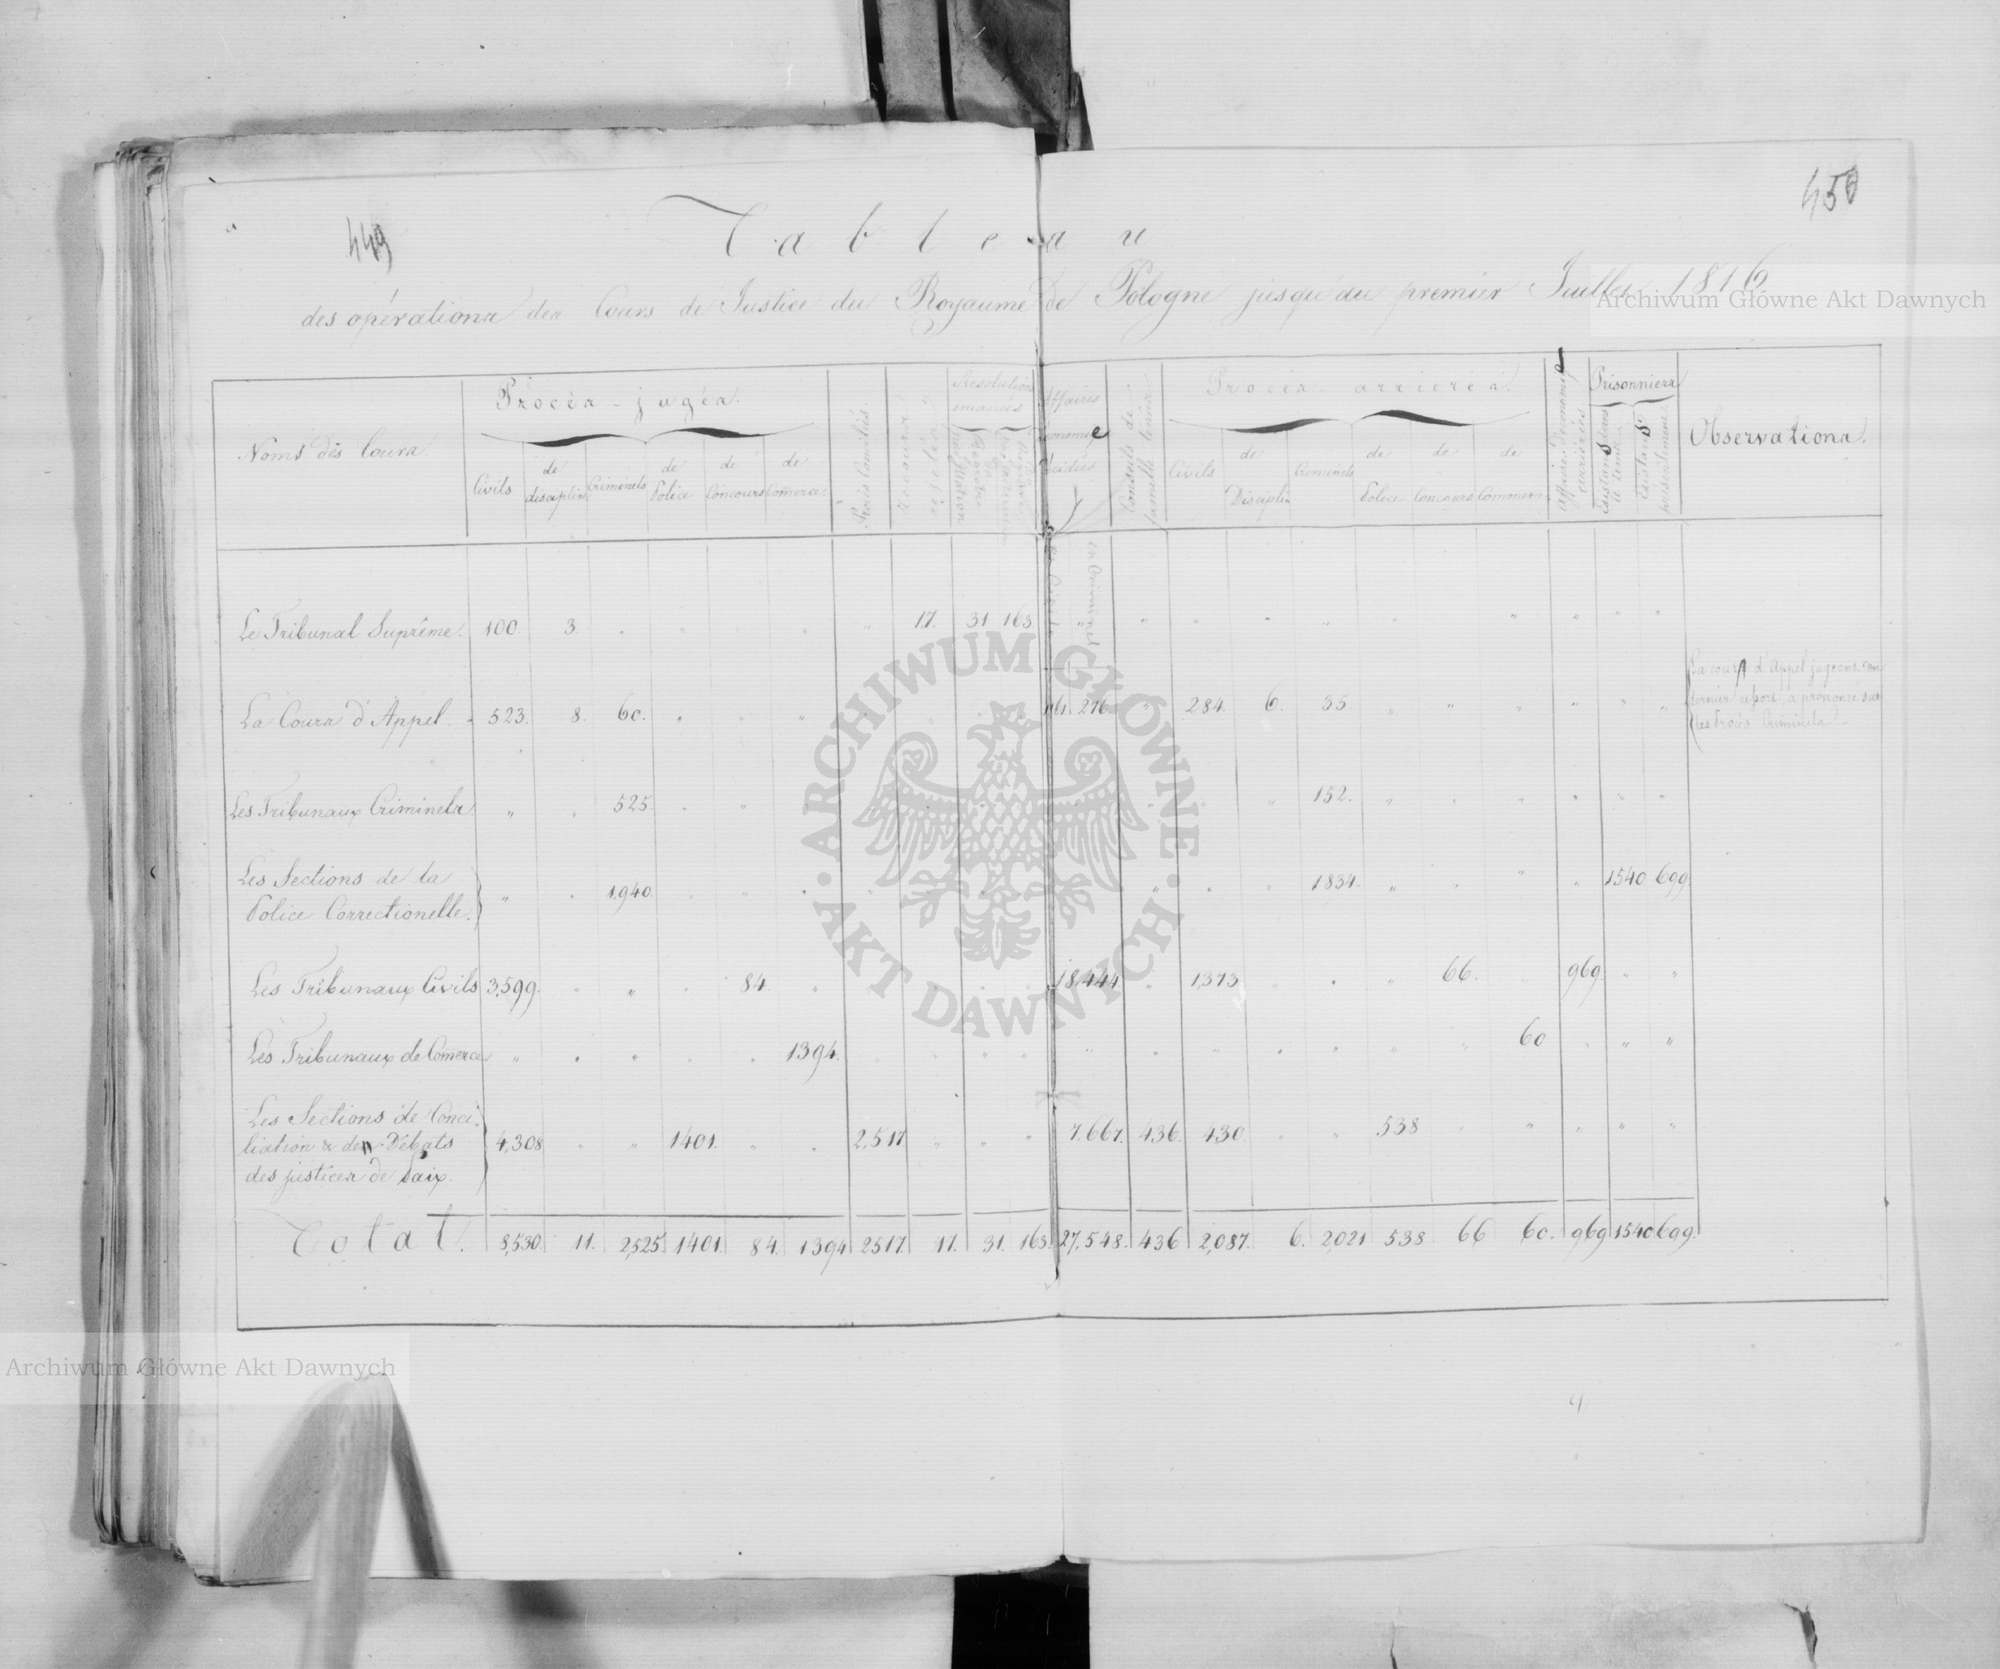 449
450
Tableau
des opérations des Cours de Justice du Royaume de Pologne jusqu'au premier Juillet 1816
Noms des Cours
Procès - jugés.
Civils
de discipline
Criminels
de Police
de Concours
de Comerce
Procès Conciliés.
Recours rejetés
Resolutions emanées
Affaires économiques décidées
en Civils
en Criminel
Conseils de famille tenûs
Procès - arrierés
Civils
de Discipline
Criminels
de Police
de Concours
de Commerce
Affaires économiques arrierées
Prisonniers
Existans dans le tems
Existans presentement
Observations.
Le Tribunal Suprême. 100. 3. " " " " " 17. 31 163. " " " " " " " " " " "
La Cours d'Appel. 523. 8. 60. " " " " " " " 161. 276. " 284. 6. 35. " " " " " "
La cours d'Appel jugeans en
dernier resort, a prononcé sur
les Procès Criminels.
Les Tribunaux Criminels " " 525. " " " " " " " " " " 152. " " " " " "
Les Sections de la
Police Correctionelle. " " 1,940. " " " " " " " " " " 1834. " " " " 1540. 699.
Les Tribunaux Civils 3,599. " " " 84. " " " " " 18,444. " 1,373 " " " 66. " 969. " "
Les Tribunaux de Comerce " " " " " 1394. " " " " " " " " " " " 60 " " "
Les Sections de Conci-
liation & des Débats
des justices de Paix. 4,308 " " 1401. " " 2,517 " " " 7,667. 436. 430. " " 538 " " " " "
Total. 8,530. 11. 2,525. 1401. 84. 1394 2517. 17. 31. 163. 27,548. 436 2,087. 6. 2,021 538 66 60. 969 1540 699.
Archiwum Główne Akt Dawnych
ARCHIWUM GŁÓWNE
AKT DAWNYCH
Archiwum Główne Akt Dawnych